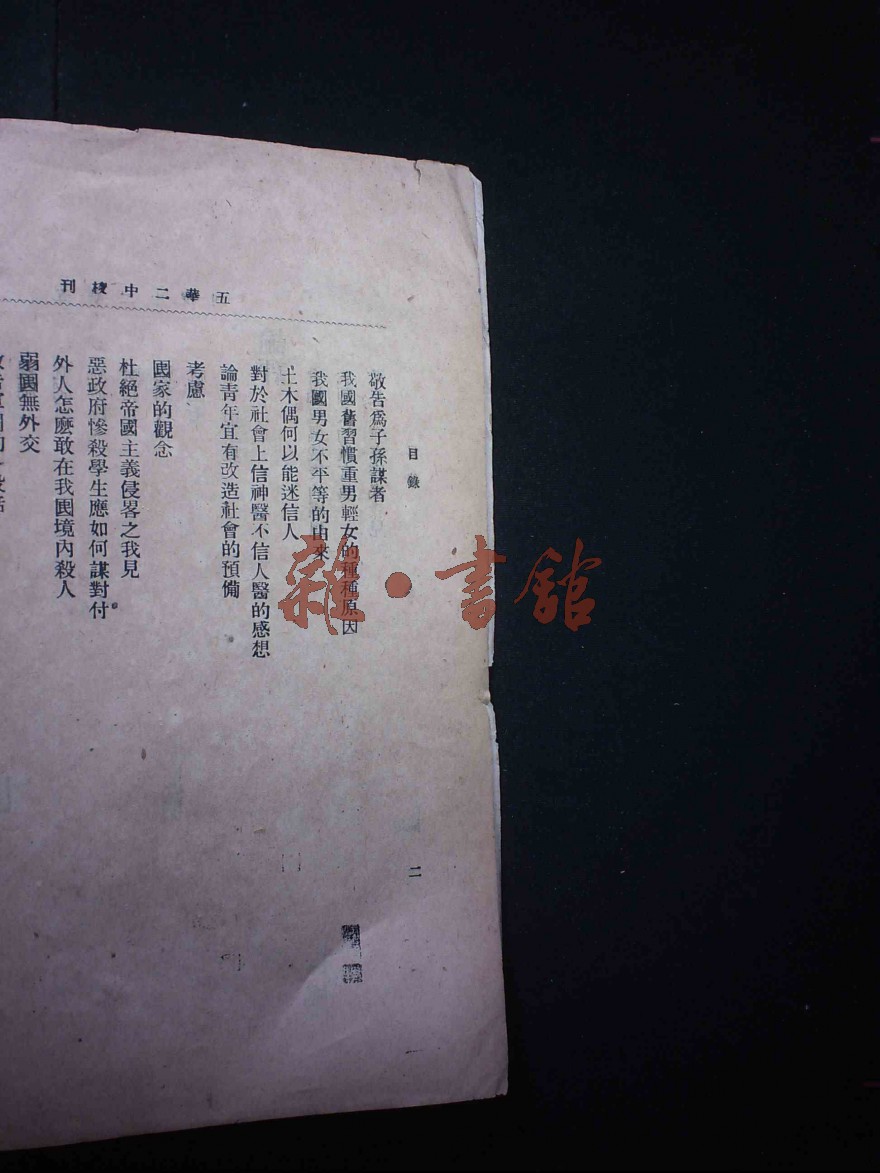 五華二中校刊
目錄
二
敬告爲子孫謀者
我國舊習慣重男輕女的種種原因
我國男女不平等的由來
土木偶何以能迷信人
對於社會上信神醫不信人醫的感想
論青年宜有改造社會的預備
考慮
國家的觀念
杜絕帝國主義侵畧之我見
惡政府慘殺學生應如何謀對付
外人怎麽敢在我國境內殺人
弱國無外交
雜·書館